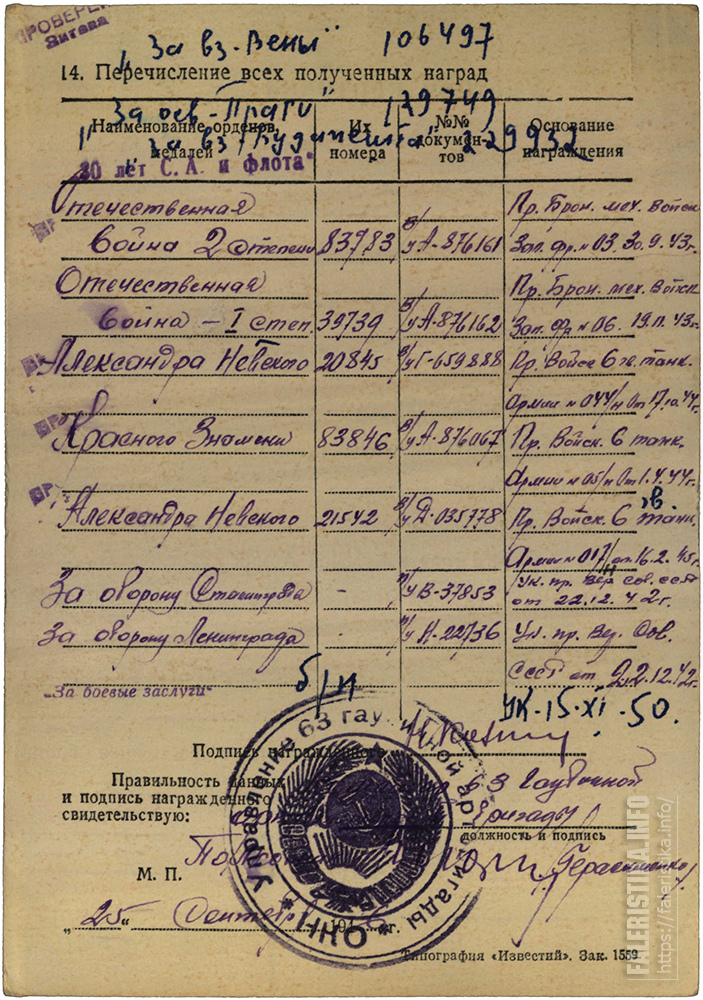 ПРОВЕРЕН
Зитава
„За вз. Вены" 106497
14. Перечисление всех полученных наград
„За осв. Праги" 129749
„За вз. Будапешта" 229932
Наименование орденов, медалей
Их номера
№№ документов
Основание награждения
"30 лет С.А. и флота"
Отечественная Пр. Брон. мех. войск
Война 2 степени 83783 А-876161 Зап. фр. н 03. 30.9.43г.
Отечественная Пр. Брон. мех. войск
Война – I степ. 39739 А-876162 Зап. Фр н 06. 19.11.43г.
Александра Невского 20845 Г-659888 Пр. Войск 6 гв. танк.
Армии н 044/н От 17.10.44г.
Красного Знамени 83846 А-876067 Пр. Войск. 6 танк.
Армии н 05/н От 1.4.44г.
Александра Невского 21542 Д-035778 Пр. Войск. 6 гв. танк.
Армии н 017/н от 16.2.45г.
За оборону Сталинграда - В-37853 Ук. пр. Вер. сов. ссср
от 22.12.42г.
За оборону Ленинграда - Н-22736 Ук. пр. Вер. Сов.
СССР от 22.12.42г.
"За боевые заслуги" б/н УК-15-XI-50.
Подпись награжденного
Правильность данных
и подпись награжденного
свидетельствую:
63 Гаубичной
бригады
должность и подпись
Герасименко
М. П.
Управление 63 гаубичной арт. бригады
„25" Сентября 194 г.
Типография «Известий». Зак. 1559
FALERISTIKA.INFO
https://faleristika.info/